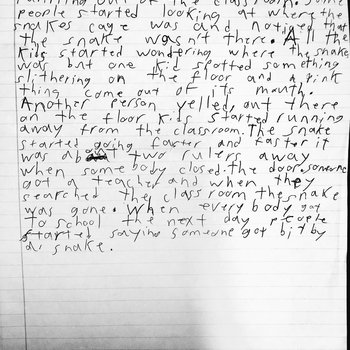 running out of the classroom. Some
people started looking at where the
snakes cage was and noticed that
the snake wasn't there. All the
kids started wondering where the snake
was but one kid spotted something
slithering on the floor and a pink
thing come out of its mouth.
Another person yelled out there
on the floor kids started running
away from the classroom. The snake
started going faster and faster it
was about two rulers away
when somebody closed the door. someone
got a teacher and when they
searched the classroom the snake
was gone. When everybody got
to school the next day people
started saying someone got bit by
a snake.